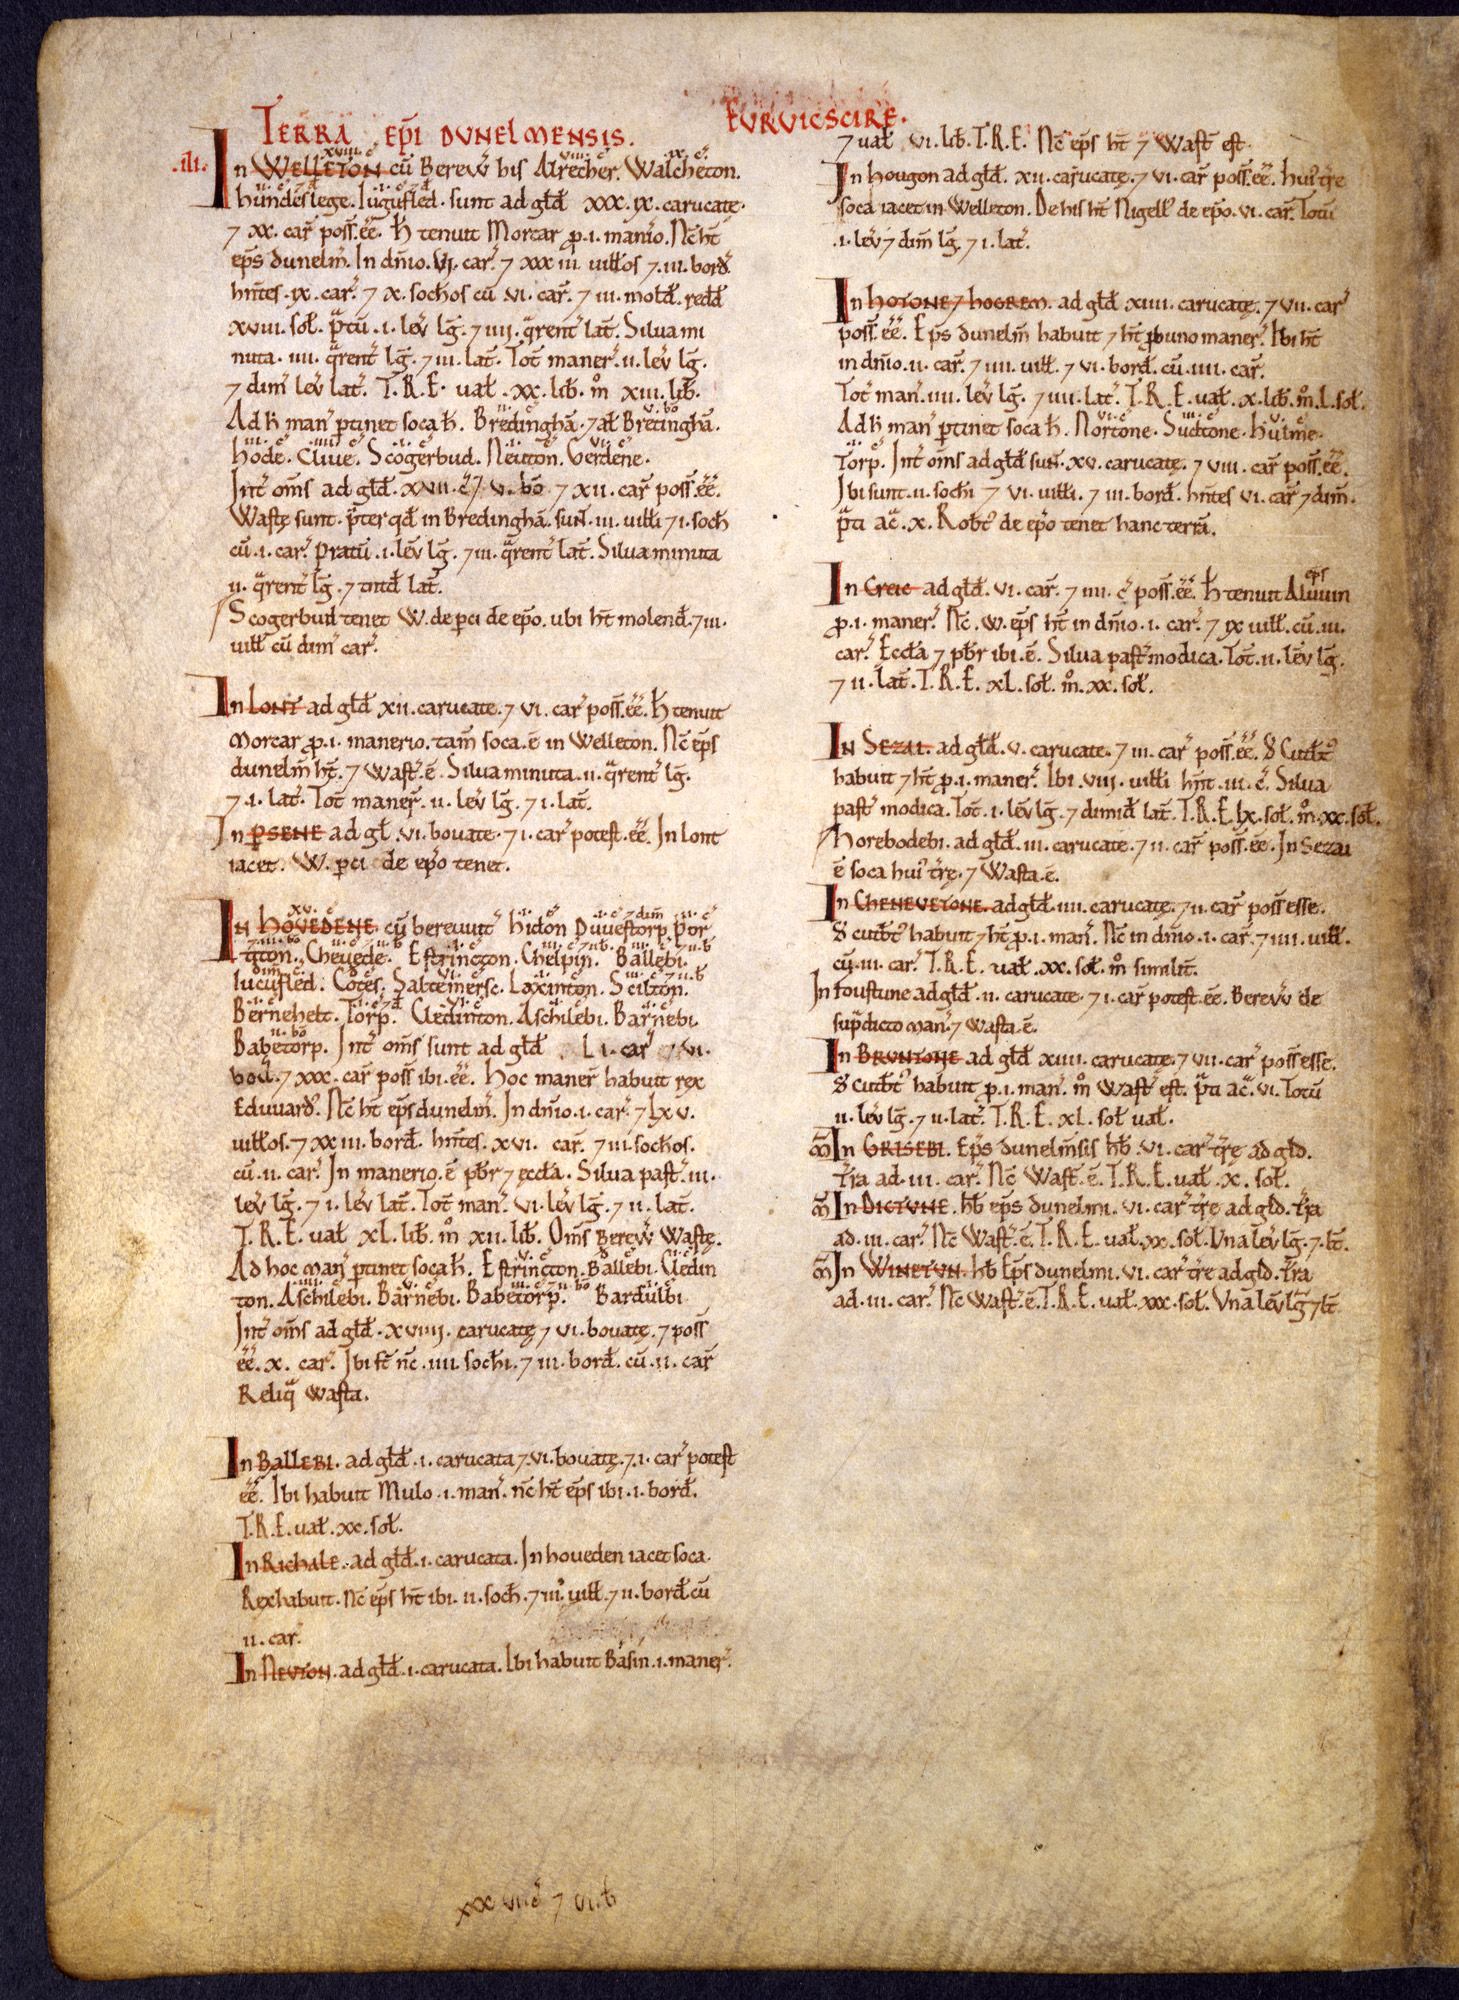 EURVICSCIRE.
.iii. TERRA EP̄I DUNELMENSIS.
xviii. c̄ viii. c̄. ix. c̄.
In WELLETON cū Bereẘ his Alrecher. Walcheton.
ii. c̄ 7 d̄ ii. c̄ 7 d̄
hundeslege. Iugufled. sunt ad gl̄d xxx.ix. carucate.
7 xx. car̄ poss̄.ēē. H̄ tenuit Morcar p̱.i. manio. Nc̄ ht̄
ep̄s dunelm̄. In dn̄io. vi. car̄. 7 xxx iii uill̄os 7.iii. bord̄.
hn̄tes. ix. car̄. 7 x. soch̄os cū vi. car̄. 7 iii. molđ. redđ
xviii. sol̄. p̄tū .i. lev̄ lḡ. 7 iiij. q̄rent̄ lat̄. Silua mi
nuta. iiii. q̄rent̄ lḡ. 7 iii. lat̄. Tot̄ maner̄. ii. lev̄ lḡ.
7 dim̄ lev̄ lat̄. T.R.E. ual̄. xx. lib̄. m̊ xiii. lib̄.
ii. c̄ v. bō
Ad h̄ man̄ ptinet soca h̄. Bredinghā. 7 al̄ Bretinghā.
iii. c̄ iiii. c̄ i. c̄ i. c̄ vi. c̄
hode. Cliue. Scogerbud. Neuton. Gerdene.
Int̄ om̄s ad gl̄d. xvii. c̄ 7 v. bō 7 xii. car̄ poss̄.ēē.
Wastę sunt. p̄ter qd̄ in Bredinghā. sun̄. iii. uill̄i 7 i. soch̄
cū .i. car̄. pratū .i. lev̄ lḡ. 7 iii. q̄rent̄ lat̄. Silua minuta
ii. q̄rent̄ lḡ. 7 tntd̄ lat̄.
Scogerbud tenet W. de pci de ep̄o. ubi ht̄ molend̄. 7 iii.
uill̄ cū dim̄ car̄.
In LONT ad gl̄d xii. carucate. 7 vi. car̄ poss̄.ēē. H̄ tenuit
Morcar p̱.i. manerio. tam̄ soca. ē in Welleton. Nc̄ ep̄s
dunelm̄ ht̄. 7 Wast̄. ē. Silua minuta. ii. q̄rent̄ lḡ.
7 .i. lat̄. Tot̄ maner̄. ii. lev̄ lḡ. 7 i. lat̄.
In PSENE ad gl̄. vi. bouate. 7 i. car̄ potest. ēē. In Lont
iacet. W. pci de ep̄o tenet.
xv. c̄ i. c̄ i. c̄ 7 dim̄ ii. c̄
In HOVEDENE. cū bereuuit̄ hidon Duuestorp. Por
7 ii. bō ii. c̄ 7 ii. b̄ i. c̄ iii. c̄ 7 i. b̄. ii. c̄ 7 ii. b̄
titon. Cheuede. Estrincton. Chelpin. Ballebi.
dim̄ c̄. vi. c̄ iii. c̄ 7 ii. b̄
lucufled. Cotes. Saltemersc. Laxinton. Scilton.
i. c̄ i. c̄ 7 d̄ vi. c̄ i. c̄ i. c̄
Bernehelt. Torp. Cledinton. Aschilebi. Barnebi.
ii. bō
Babetorp. Int̄ om̄s sunt ad gl̄d L i. car̄ 7 vi.
bou̅. 7 xxx. car̄ poss̄ ibi. ēē. Hoc maner̄ habuit rex
Eduuard̄. Nc̄ ht̄ ep̄s dunelm̄. In dn̄io. i. car̄. 7 lxv.
uill̄os. 7 xx iii. bord̄. hn̄tes. xvi. car̄. 7 iii. soch̄os.
cū. ii. car̄. In manerio. ē pb̄r 7 ęccl̄a. Silua past̄. iii.
lev̄ lḡ. 7 i. lev̄ lat̄. Tot̄ man̄. vi. lev̄ lḡ. 7 ii. lat̄.
T.R.E. ual̄ xL. lib̄. m̊ xii. lib̄. Om̄s Bereẘ Wastę.
v. c̄ i. c̄
Ad hoc man̄ ptinet soca h̄. Estrincton. Ballebi. Cledin
iiii. c̄ v. c̄ iii. c̄ 7 ii. bō
ton. Aschilebi. Barnebi. Babetorp. Bardulbi
Int̄ om̄s ad gl̄d. xviiij. carucatę 7 vi. bouatę. 7 poss̄
ēē. x. car̄. Ibi st̄ nc̄. iiii. soch̄i. 7 iii. bord̄. cū. ii. car̄
Reliq̄ wasta.
In BALLEBI. ad gl̄d. i. carucata 7 vi. bouatę. 7 i. car̄ potest
ēē. Ibi habuit Mulo. i. man̄. nc̄ ht̄ ep̄s ibi. i. bord̄.
T.R.E. ual̄. xx. sol̄.
In RICHALE. ad gl̄d. i. carucata. In houeden iacet soca.
Rex habuit. Nc̄ ep̄s ht̄ ibi. ii. soch̄. 7 iii. uill̄. 7 ii. bord̄ cū
ii. car̄.
In NEUTON. ad gl̄d. i. carucata. Ibi habuit Basin. i. maner̄.
7 ual̄ vi. lib̄. T.R.E. Nc̄ ep̄s ht̄ 7 Wast̄ est.
In hougon ad gl̄d. xii. carucatę. 7 vi. car̄ poss̄.ēē. hui᷒ tr̄e
soca iacet in Welleton. De his ht̄ Nigell᷒ de ep̄o. vi. car̄. Totū
.i. lev̄ 7 dim̄ lḡ. 7 i. lat̄.
In HOTONE 7 HOGREM. ad gl̄d xiiii. carucatę. 7 vii. car̄
poss̄. ēē. Ep̄s dunelm̄ habuit 7 ht̄ p̱ uno maner̄. Ibi ht̄
in dn̄io. ii. car̄. 7 iiii. uill̄. 7 vi. bord̄. cū. iiii. car̄.
Tot̄ man̄. iiii. lev̄ lḡ. 7 iiii. lat̄. T.R.E. ual̄. x. lib̄. m̊. L. sol̄.
vi. c̄ iii. c̄ ii. c̄
Ad h̄ man̄ ptinet soca h̄. Nortone. Sudtone. hulme.
iii. c̄
Torp. Int̄ om̄s ad gl̄d sun̄. xv. carucatę. 7 viii. car̄ poss̄.ēē.
Ibi sunt. ii. soch̄i 7 vi. uill̄i. 7 iii. bord̄. hn̄tes vi. car̄ 7 dim̄.
p̄ti ac̄. x. Rob̄t᷒ de ep̄o tenet hanc terrā.
ep̄s
In CREIC ad gl̄d. vi. car̄. 7 iiii. c̄ poss̄.ēē. H̄ tenuit Aluuin
p̱.i. maner̄. Nc̄. W. ep̄s ht̄ in dn̄io. i. car̄. 7 ix uill̄. cū. iii.
car̄. Eccl̄a 7 pb̄r ibi. ē. Silua past̄ modica. Tot̄. ii. lev̄ lḡ.
7 ii. lat̄. T.R.E. xL. sol̄. m̊. xx. sol̄.
In SEZAI. ad gl̄d. v. carucate. 7 iii. car̄ poss̄.ēē. S Cutb̄t᷒
habuit 7 ht̄ p̱.i. maner̄. Ibi. viii. uill̄i hn̄t. iii. c̄. Silua
past̄ modica. Tot̄. i. lev̄ lḡ. 7 dimid̄ lat̄. T.R.E. lx. sol̄. m̊. xx. sol̄.
Horebodebi. ad gl̄d. iii. carucate. 7 ii. car̄ poss̄. ēē. In Sezai
ē soca hui᷒ tr̄ę. 7 Wasta. ē.
In CHENEVETONE. ad gl̄d. iiii. carucatę. 7 ii. car̄ poss̄ esse.
S cutb̄t᷒ habuit 7 ht̄ p̱.i. man̄. Nc̄ in dn̄io. i. car̄. 7 iiii. uill̄.
cū. iii. car̄. T.R.E. ual̄. xx. sol̄. m̊ similit̄.
In foustune ad gl̄d. ii. carucate. 7 i. car̄ potest. ēē. Bereẘ de
sup̄dicto man̄. 7 wasta. ē.
In BRUNTONE ad gl̄d xiiii. carucatę. 7 vii. car̄ poss̄ esse.
S cutb̄t᷒ habuit p̱.i. man̄. m̊ Wast̄ est. p̄ti ac̄. vi. Totū
ii. lev̄ lḡ. 7 ii. lat̄. T.R.E. xL. sol̄ ual̄.
M̄ In GRISEBI. Ep̄s dunelm̄sis hb̄. vi. car̄ tr̄ę ad gld.
tr̄a ad. iii. car̄. Nc̄ Wast̄. ē. T.R.E. ual̄. x. sol̄.
M̄ In DICTUNE. hb̄ ep̄s dunelmi. vi. car̄ tr̄ę ad gld. tr̄a
ad. iii. car̄. Nc̄ Wast̄. ē. T.R.E. ual̄. xx. sol̄. Una lev̄ lḡ. 7 lt̄.
M̄ In WINETUN. hb̄ Ep̄s dunelmi. vi. car̄ tr̄e ad gld. tr̄a
ad. iii. car̄. Nc̄ Wast̄. ē. T.R.E. ual̄. xxx. sol̄. Una lev̄ lḡ 7 lt̄
xxx vii c̄ 7 vi. b̄